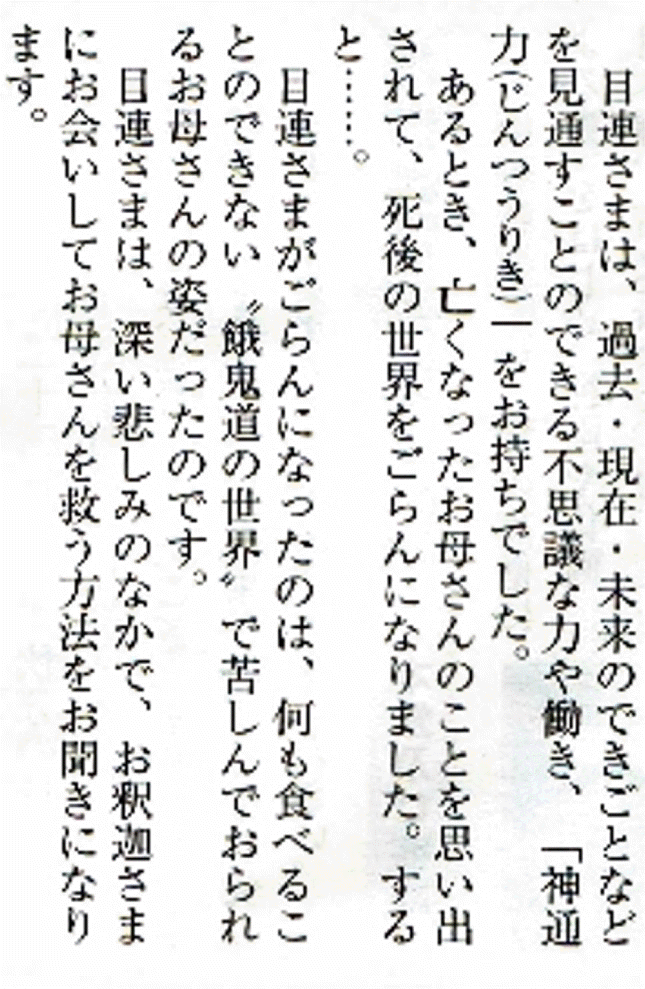 目連さまは、過去・現在・未来のできごとなど
を見通すことのできる不思議な力や働き、「神通
力(じんつうりき)」をお持ちでした。
あるとき、亡くなったお母さんのことを思い出
されて、死後の世界をごらんになりました。する
と……。
目連さまがごらんになったのは、何も食べるこ
とのできない〝餓鬼道の世界〟で苦しんでおられ
るお母さんの姿だったのです。
目連さまは、深い悲しみのなかで、お釈迦さま
にお会いしてお母さんを救う方法をお聞きになり
ます。